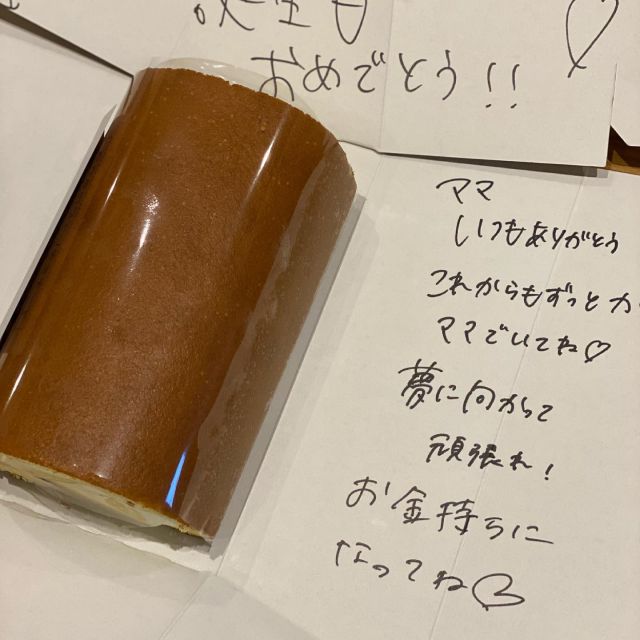 おめでとう!!
ママ
いつもありがとう
これからもずっと
ママでいてね♡
夢に向かって
頑張れ!
お金持ちに
なってね♡